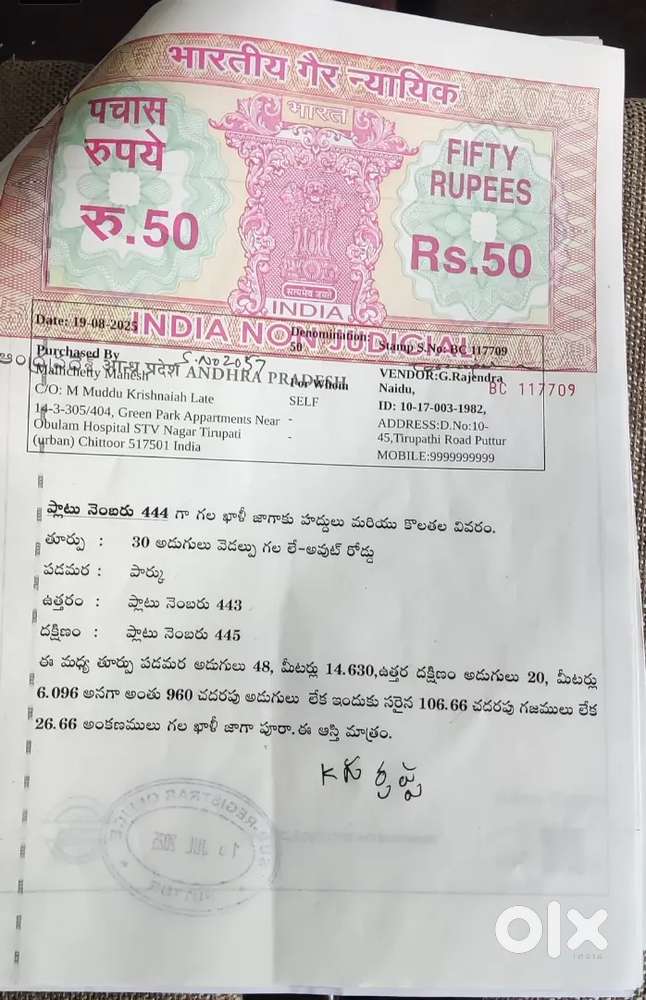 भारतीय गैर न्यायिक
पचास
रुपये
रु.50
भारत
FIFTY
RUPEES
Rs.50
सत्यमेव जयते
INDIA
INDIA NON JUDICIAL
Date: 19-08-2025
Denomination:
50
Stamp S.No: BC 117709
S.No 2057
आन्ध्र प्रदेश ANDHRA PRADESH
BC 117709
Purchased By
Mallichetty Mahesh
C/O: M Muddu Krishnaiah Late
14-3-305/404, Green Park Appartments Near
Obulam Hospital STV Nagar Tirupati
(urban) Chittoor 517501 India
For Whom
SELF
-
-
VENDOR:G.Rajendra
Naidu,
ID: 10-17-003-1982,
ADDRESS:D.No:10-
45,Tirupathi Road Puttur
MOBILE:9999999999
ప్లాటు నెంబరు 444 గా గల ఖాళీ జాగాకు హద్దులు మరియు కొలతల వివరం.
తూర్పు : 30 అడుగులు వెడల్పు గల లే-అవుట్ రోడ్డు
పడమర : పార్కు
ఉత్తరం : ప్లాటు నెంబరు 443
దక్షిణం : ప్లాటు నెంబరు 445
ఈ మధ్య తూర్పు పడమర అడుగులు 48, మీటర్లు 14.630,ఉత్తర దక్షిణం అడుగులు 20, మీటర్లు
6.096 అనగా అంతు 960 చదరపు అడుగులు లేక ఇందుకు సరైన 106.66 చదరపు గజములు లేక
26.66 అంకణములు గల ఖాళీ జాగా పూరా.ఈ ఆస్తి మాత్రం.
olx
INDIA